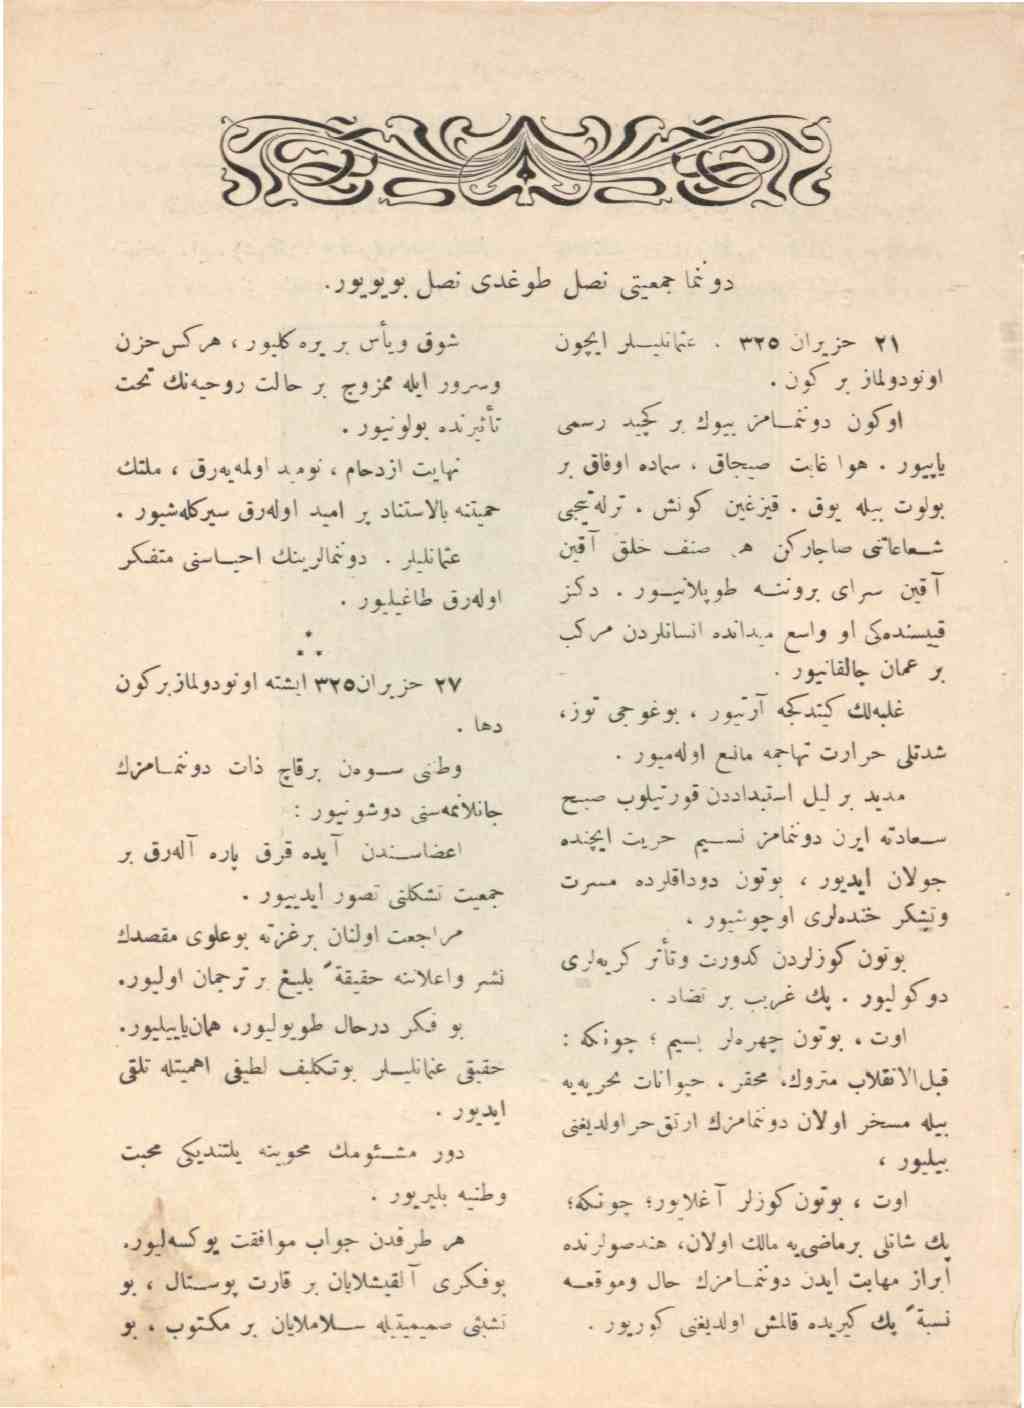 دوننما جمعیتی نصل طوغدی نصل بویویور.
٢١ حزیران ٣٢٥ . عثمانلیلر ایچون
اونودولماز بر کون .
اوکون دوننمامز بیوك بر کچید رسمی
یاپیور . هوا غایت صیجاق ، سماده اوفاق بر
بولوت بیله یوق . قیزغین کونش ، ترله‌تیجی
شعاعاتنی صاچارکن هر صنف خلق آقین
آقین سرای بروننه طوپلانیور . دکز
قییسنده‌کی او واسع میدانده انسانلردن مرکب
بر عمان چالقانیور .
غلبه‌لك کیتدکجه آرتیور ، بوغوجی توز،
شدتلی حرارت تهاجمه مانع اوله‌میور .
مدید بر لیل استبداددن قورتیلوب صبح
سعادته ایرن دوننمامز نسیم حریت ایچنده
جولان ایدیور ، بوتون دوداقلرده مسرت
وتشکر خنده‌لری اوچوشیور .
بوتون کوزلردن کدورت وتأثر کریه‌لری
دوکولیور . پك غریب بر تضاد .
اوت ، بوتون چهره‌لر بسیم ؛ چونکه :
قبل‌الانقلاب متروك، محقر ، حیوانات بحریه‌یه
بیله مسخر اولان دوننمامزك ارتق حر اولدیغنی
بیلیور ،
اوت ، بوتون کوزلر آغلایور؛ چونکه؛
پك شانلی برماضی‌یه مالك اولان، هندصولرنده
ابراز مهابت ایدن دوننمامزك حال وموقعه
نسبةً پك کیریده قالمش اولدیغنی کوریور .
شوق ویأس بر یره کلیور ، هرکس حزن
وسرور ایله ممزوج بر حالت روحیه‌نك تحت
تأثیرنده بولونیور .
نهایت ازدحام ، نومید اولمه‌یه‌رق ، ملتك
حمیتنه بالاستناد پر امید اوله‌رق سیرکله‌شیور .
عثمانلیلر . دوننمالرینك احیاسنی متفکر
اوله‌رق طاغیلیور .
*
* *
٢٧ حزیران ٣٢٥ ایشته اونودولماز برکون
دها .
وطنی سوه‌ن برقاچ ذات دوننمامزك
جانلانمه‌سنی دوشونیور :
اعضاسندن آیده قرق پاره آله‌رق بر
جمعیت تشکلنی تصور ایدییور .
مراجعت اولنان برغزته بوعلوی مقصدك
نشر واعلاننه حقیقةً بلیغ بر ترجمان اولیور.
بو فکر درحال طویولیور، همان‌یاپیلیور.
حقیقی عثمانلیلر بوتکلیف لطیفی اهمیتله تلقی
ایدیور .
دور مشئومك محوینه یلتندیکی محبت
وطنیه بلیریور .
هر طرفدن جواب موافقت یوکسه‌لیور.
بوفکری آلقیشلایان بر قارت پوستال ، بو
تشبثی صمیمیتله سلاملایان بر مکتوب ، بو